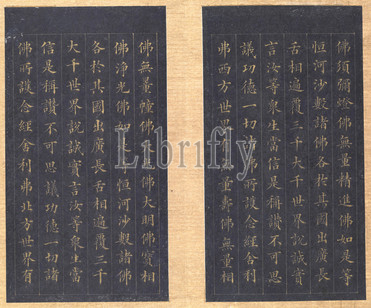 佛須彌燈佛無量精進佛如是等
恒河沙數諸佛各於其國出廣長
舌相遍覆三千大千世界說誠實
言汝等眾生當信是稱讚不可思
議功德一切諸佛所護念經舍利
弗西方世界無量壽佛無量相
佛無量幢佛佛大明佛寶相
佛淨光佛如恒河沙數諸佛
各於其國出廣長舌相遍覆三千
大千世界說誠實言汝等眾生當
信是稱讚不可思議功德一切諸
佛所護念經舍利弗北方世界有
Librifly